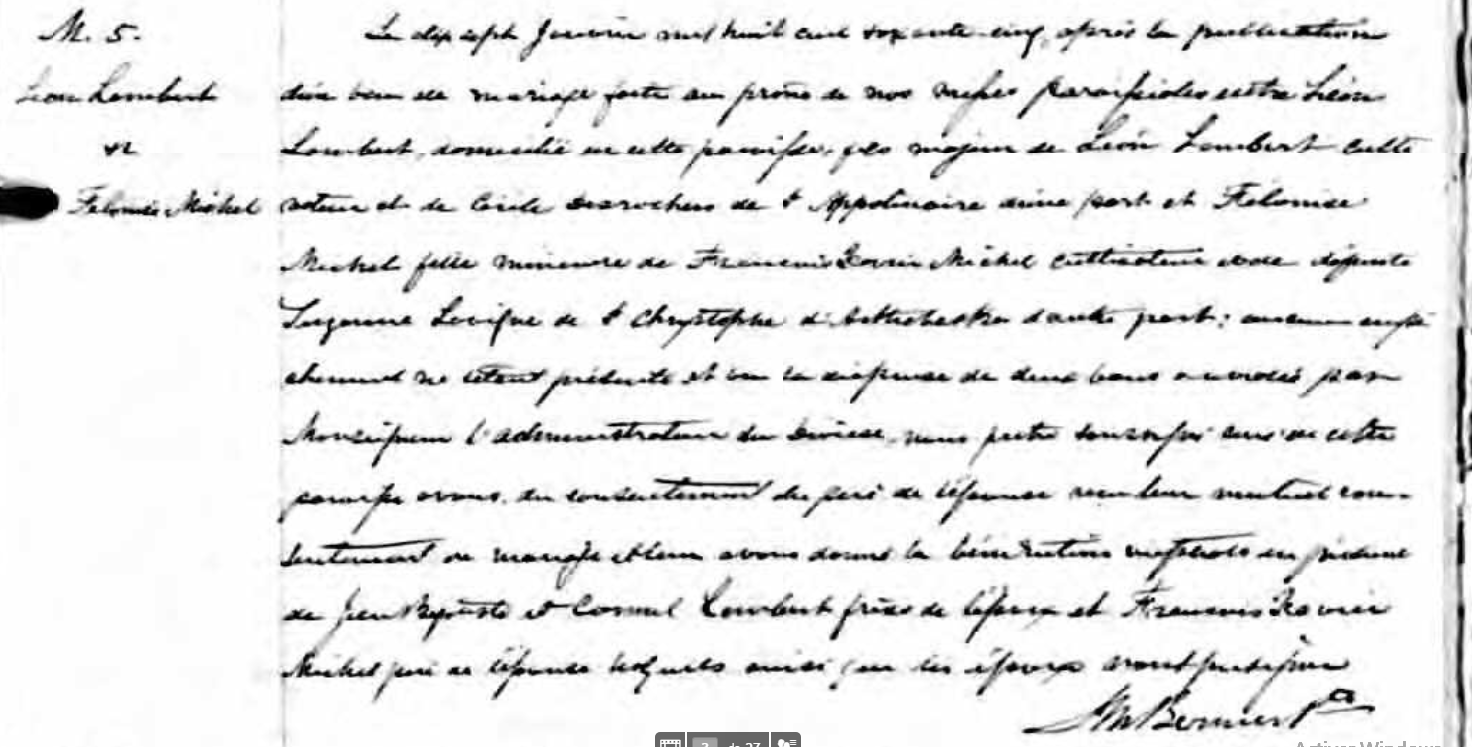 M. 5.
Léon Lambert
&
Félonise Michel
Le dix sept Janvier mil huit cent soixante-cinq, après la publication
d'un ban de mariage faite au prône de nos messes paroissiales entre Léon
Lambert, domicilié en cette paroisse, fils majeur de Léon Lambert culti
vateur et de Cécile Desrochers de St Appolinaire d'une part et Félonise
Michel fille mineure de François Xavier Michel cultivateur et de défunte
Suzanne Levêque de St Chrystophe d'Arthabaska d'autre part; aucun empê
chement ne s'étant présenté et vu la dispense de deux bans accordée par
Monseigneur l'administrateur du diocèse, nous prêtre soussigné curé de cette
paroisse avons, du consentement du père de l'épouse reçu leur mutuel con-
sentement de mariage et leur avons donné la bénédiction nuptiale en présence
de Jean Baptiste et Lambert frères de l'époux et François Xavier
Michel père de l'épouse lesquels ainsi que les époux n'ont pu signer
Bernier Ptre
2 de 27
Activer Windows